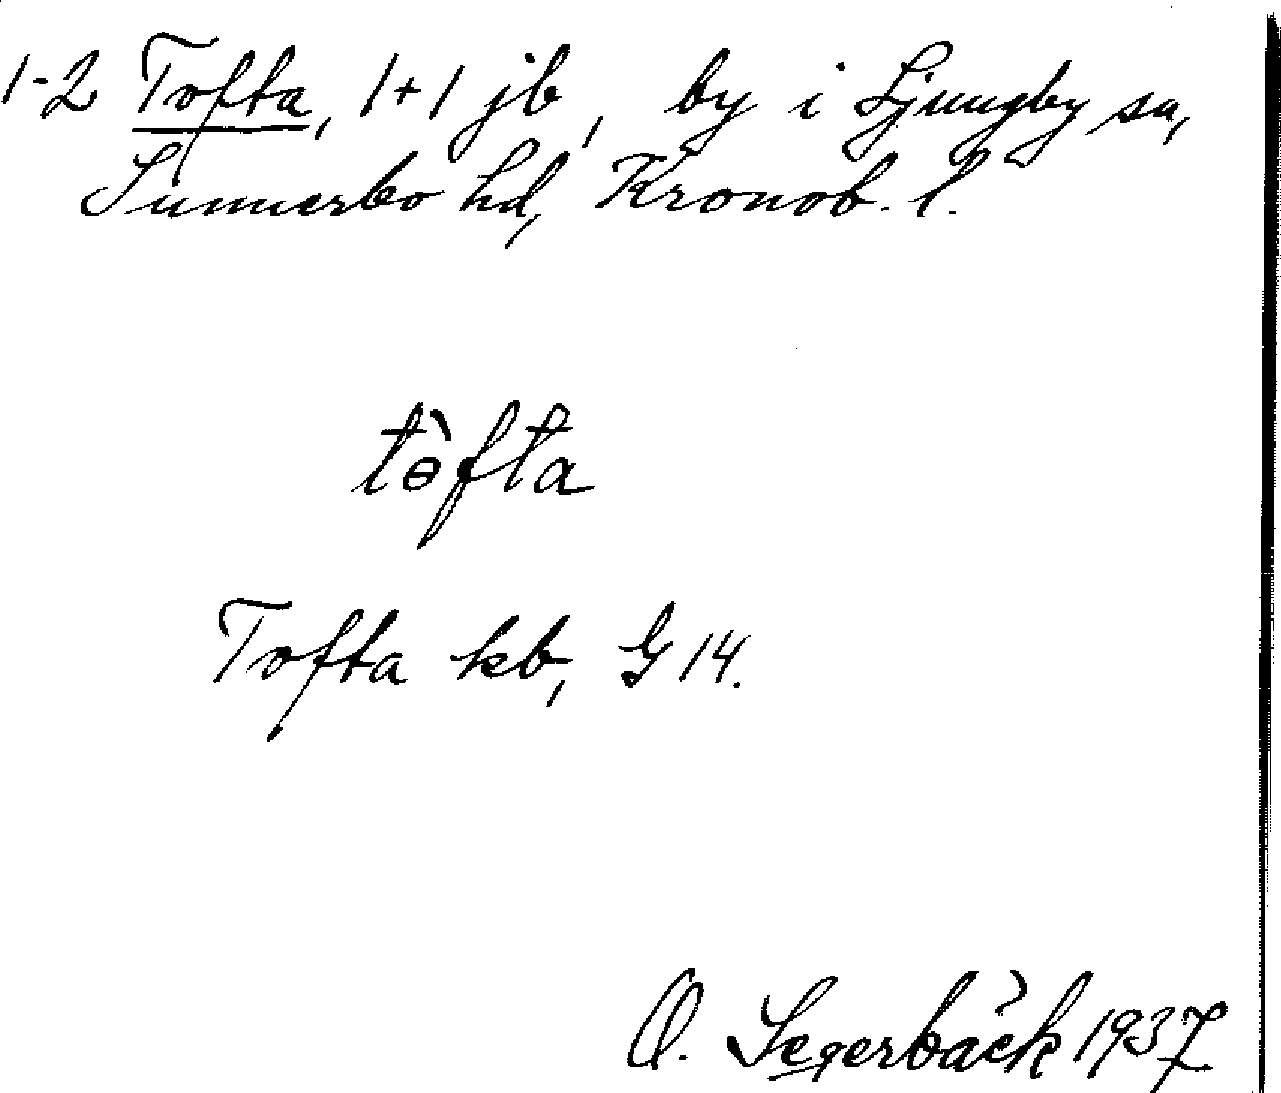 1-2 Tofta, 1+1 jb, by i Ljungby sn,
Sunnerbo hd, Kronob. l.
tɵ̀fta
Tofta kb, G 14.
O. Segerbäck 1937